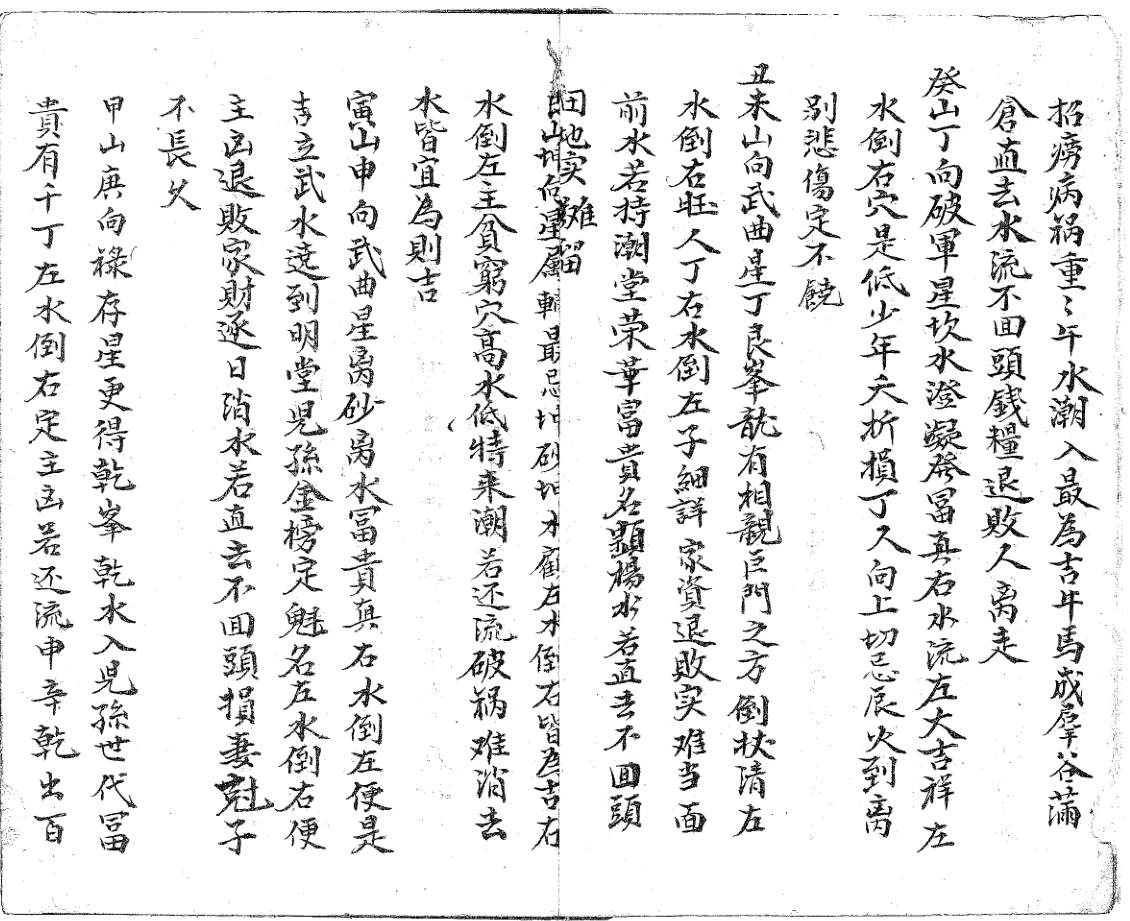 招痨病祸重〻午水潮入最為吉牛馬成羣谷滿
倉直去水流不囬頭錢糧退敗人离走
癸山丁向破軍星坎水澄凝發冨真右水流左大吉祥左
水倒右穴是低少年夭折損丁又向上切忌辰火到离
别悲傷定不饒
丑未山向武曲星丁良峯龍有相親巨門之方倒状清左
水倒右旺人丁右水倒左子細詳家資退敗实难当面
前水若特潮堂荣華富貴名顯楊水若直去不囬頭
田地实难留
山坤向星屬輔最忌坤砂坤水雇左水倒右皆為吉右
水倒左主貧窮穴高水低特来潮若还流破祸难消去
水皆宜為則吉
寅山申向武曲星离砂离水冨貴真右水倒左便是
吉立武水遶到明堂児孫金榜定魁名左水倒右便
主凶退敗家財逐日消水若直去不囬頭損妻尅子
不長久
甲山庚向祿存星更得乾峯乾水入児孫世代冨
貴有千丁左水倒右定主凶若还流申辛乾出百